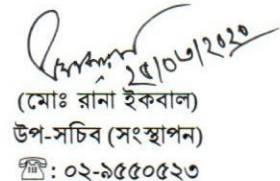 ২৫/০৩/২০২০
(মোঃ রানা ইকবাল)
উপ-সচিব (সংস্থাপন)
☎: ০২-৯৫৫০৫২৩